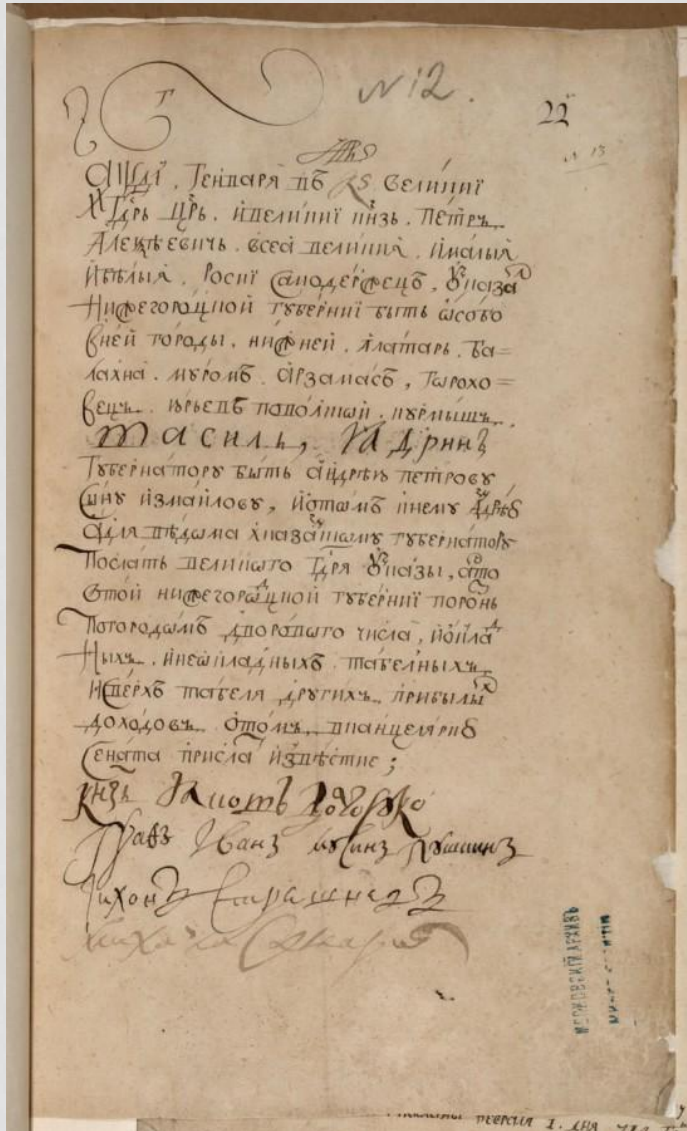 N 12.
22
N 13
АѰДІ, Генваря въ КЅ великиї
Гдрь Црь. и великиї кнзь. Петръ
Алеѯѣевичь. всеа великия. и малыя
и бѣлыя. Росиї Самодержецъ, Ꙋказал
Нижегороцкой губернії быть ѡсобо
в ней городы. нижней. Алатарь. Ба=
лахна. муромъ. Арзамасъ, горохо=
вецъ. юрьевъ поволской. курмышъ.
василь, Ядринъ
Губернатору быть андрѣю петрову
Сыну измайлову, и отомъ к нему
а для вѣдома
Послать великого Гдря Ꙋказы, а что
в той нижегороцкой губернії порознь
по городамъ дворового числа, и ѡклад
ныхъ. и неѡкладныхъ табелныхъ
и сверхъ табеля других прибылых
доходовъ. ѡ томъ. в канцелярию
Сената присла извѣстие;
кнзь Долгоруко
Графъ Иванъ Мусинъ Пушкинъ
Тихонъ Стрешневъ
Михайло Самарин
МОСКОВСКІЙ АРХИВЪ